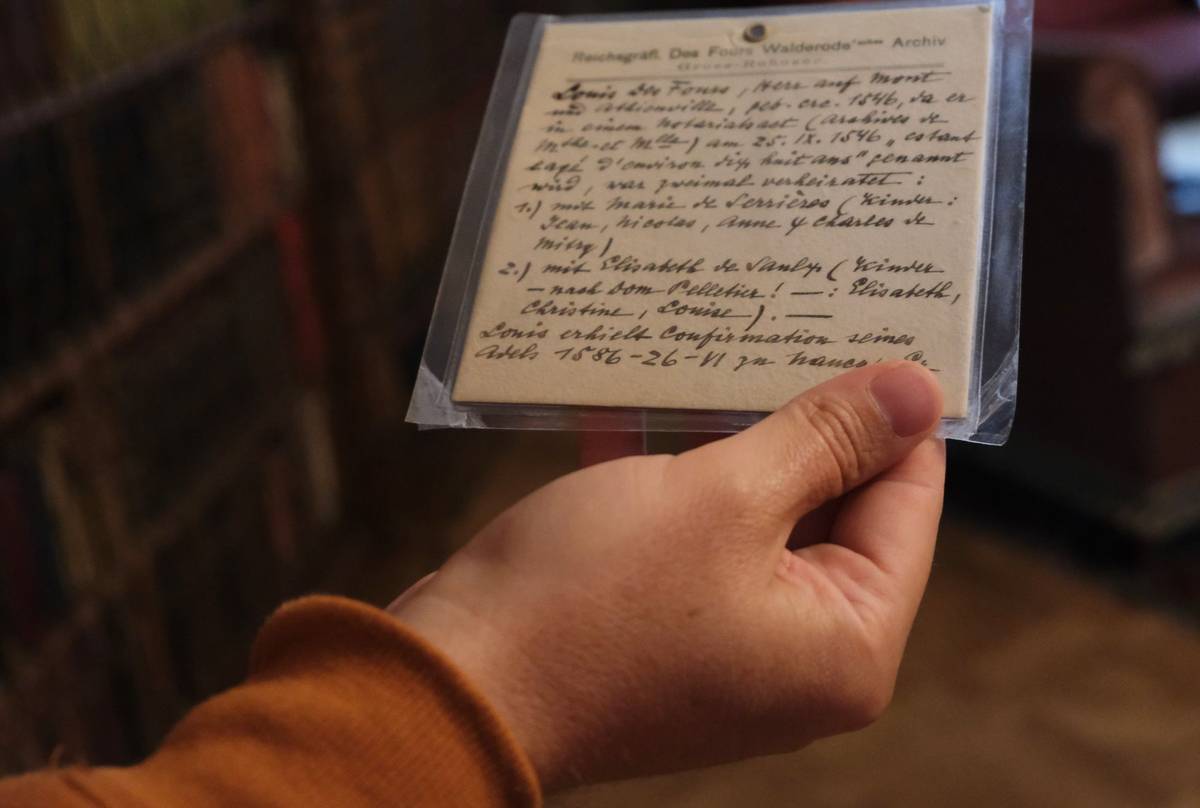 Reichsgräfl. Des Fours Walderode'sches Archiv
Gross-Rohosec.
Louis Des Fours, Herr auf Mont
und Athienville, geb. crc. 1546, da er
in einem Notariatsact (Archives de
Mthe. et Mlle) am 25. IX. 1546 „estant
eagé d'environ dix huit ans" genannt
wird, war zweimal verheiratet :
1.) mit Marie de Serrières (Kinder :
Jean, Nicolas, Anne y Charles de
Mitry)
2.) mit Elisabeth de Saulx. (Kinder
– nach Dom Pelletier ! — : Elisabeth,
Christine, Louise). —
Louis erhielt Confirmation seines
Adels 1586-26-VI zu